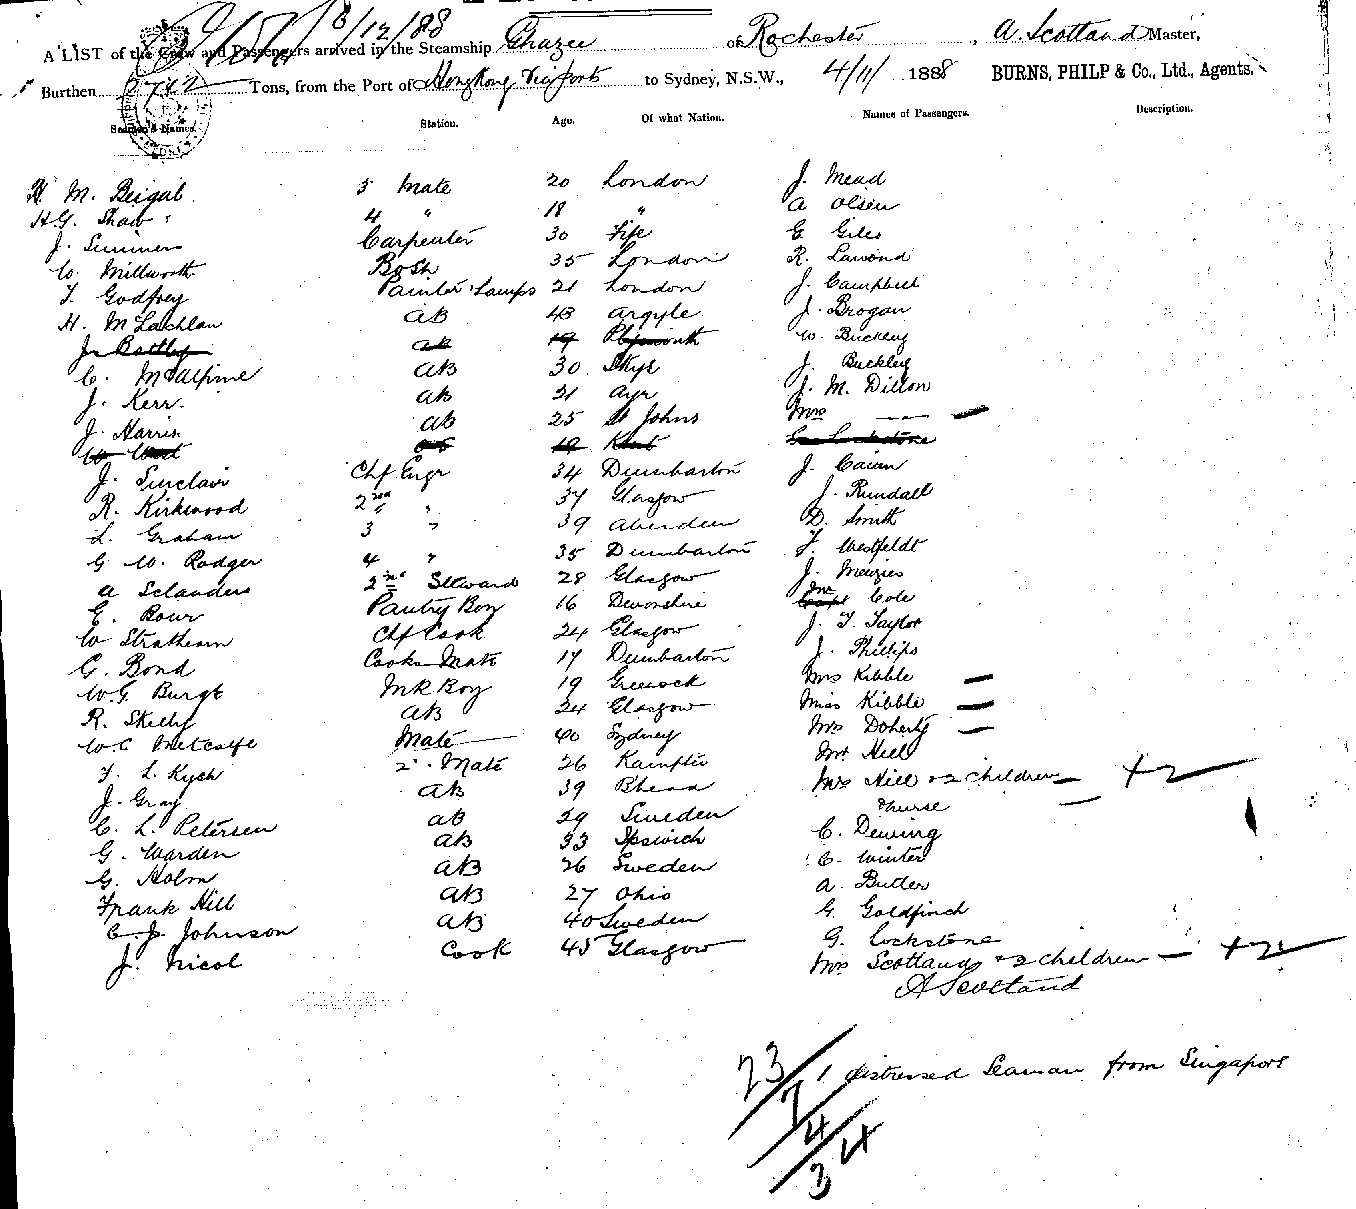 6/12/88
A LIST of the Crew and Passengers arrived in the Steamship Ghazee of Rochester, A. Scotland Master,
Burthen 2762 Tons, from the Port of Hong Kong Via ports to Sydney, N.S.W., 4/11/1888 BURNS, PHILP & Co., Ltd., Agents.
Seamen's Names. Station. Age. Of what Nation. Names of Passengers. Description.
H. M. Beigal 3 Mate 20 London J. Mead
H.G. Shaw 4 " 18 " A Olsen
J. Summers Carpenter 30 Fife E Giles
W. Millworth Bosn 35 London R.
T. Godfrey Painter & Lamps 21 London J. Campbell
H. McLachlan AB 43 Argyle J. Brogan
J. AB 19 Plymouth W. Buckley
C. McAlpine AB 30 Skye J. Buckley
J. Kerr. AB 21 Ayr J. M. Dillon
J. Harris AB 25 St Johns Mrs —
W Wood AB 19 Kent Geo Lockstone
J. Sinclair Chf Engr 34 Dumbarton J. Caian
R. Kirkwood 2nd " 37 Glasgow J. Rundall
L. Graham 3 " 39 Aberdeen D. Smith
G W. Rodger 4 " 35 Dumbarton F. Westfeldt
A Sclanders 2nd Steward 28 Glasgow J. Menzies
E. Bowr Pantry Boy 16 Devonshire Mr Cole
W Strathearn Chf Cook 24 Glasgow J. T. Taylor
G. Bond Cooks Mate 17 Dumbarton J. Phillips
W.G Burgt MR Boy 19 Greenock Mrs Kibble —
R. Skelly AB 24 Glasgow Miss Kibble —
W.C Metcalfe Mate 40 Sydney Mrs Doherty —
F. L. Kych 2nd Mate 26 Mr Hill
J. Gray AB 39 Mrs Hill & 2 children — +2
C. L. Petersen AB 29 Sweden & nurse —
G. Warden AB 33 Ipswich C. Dewing
G. Holm AB 26 Sweden C. Winter
Frank Hill AB 27 Ohio A. Butler
C. J. Johnson AB 40 Sweden G. Goldfinch
J. Nicol Cook 45 Glasgow G. Lockstone
Mrs Scotland & 2 children — +2
A Scotland
1 distressed Seaman from Singapore
23
7
4
3 4